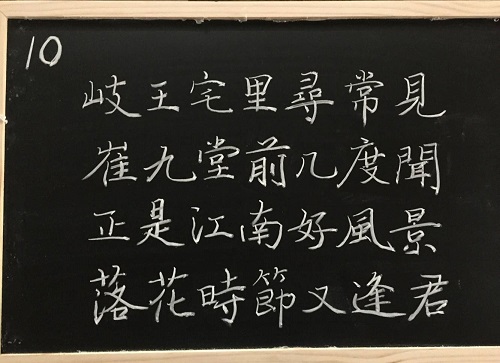 10
岐王宅里尋常見
崔九堂前几度聞
正是江南好風景
落花時節又逢君